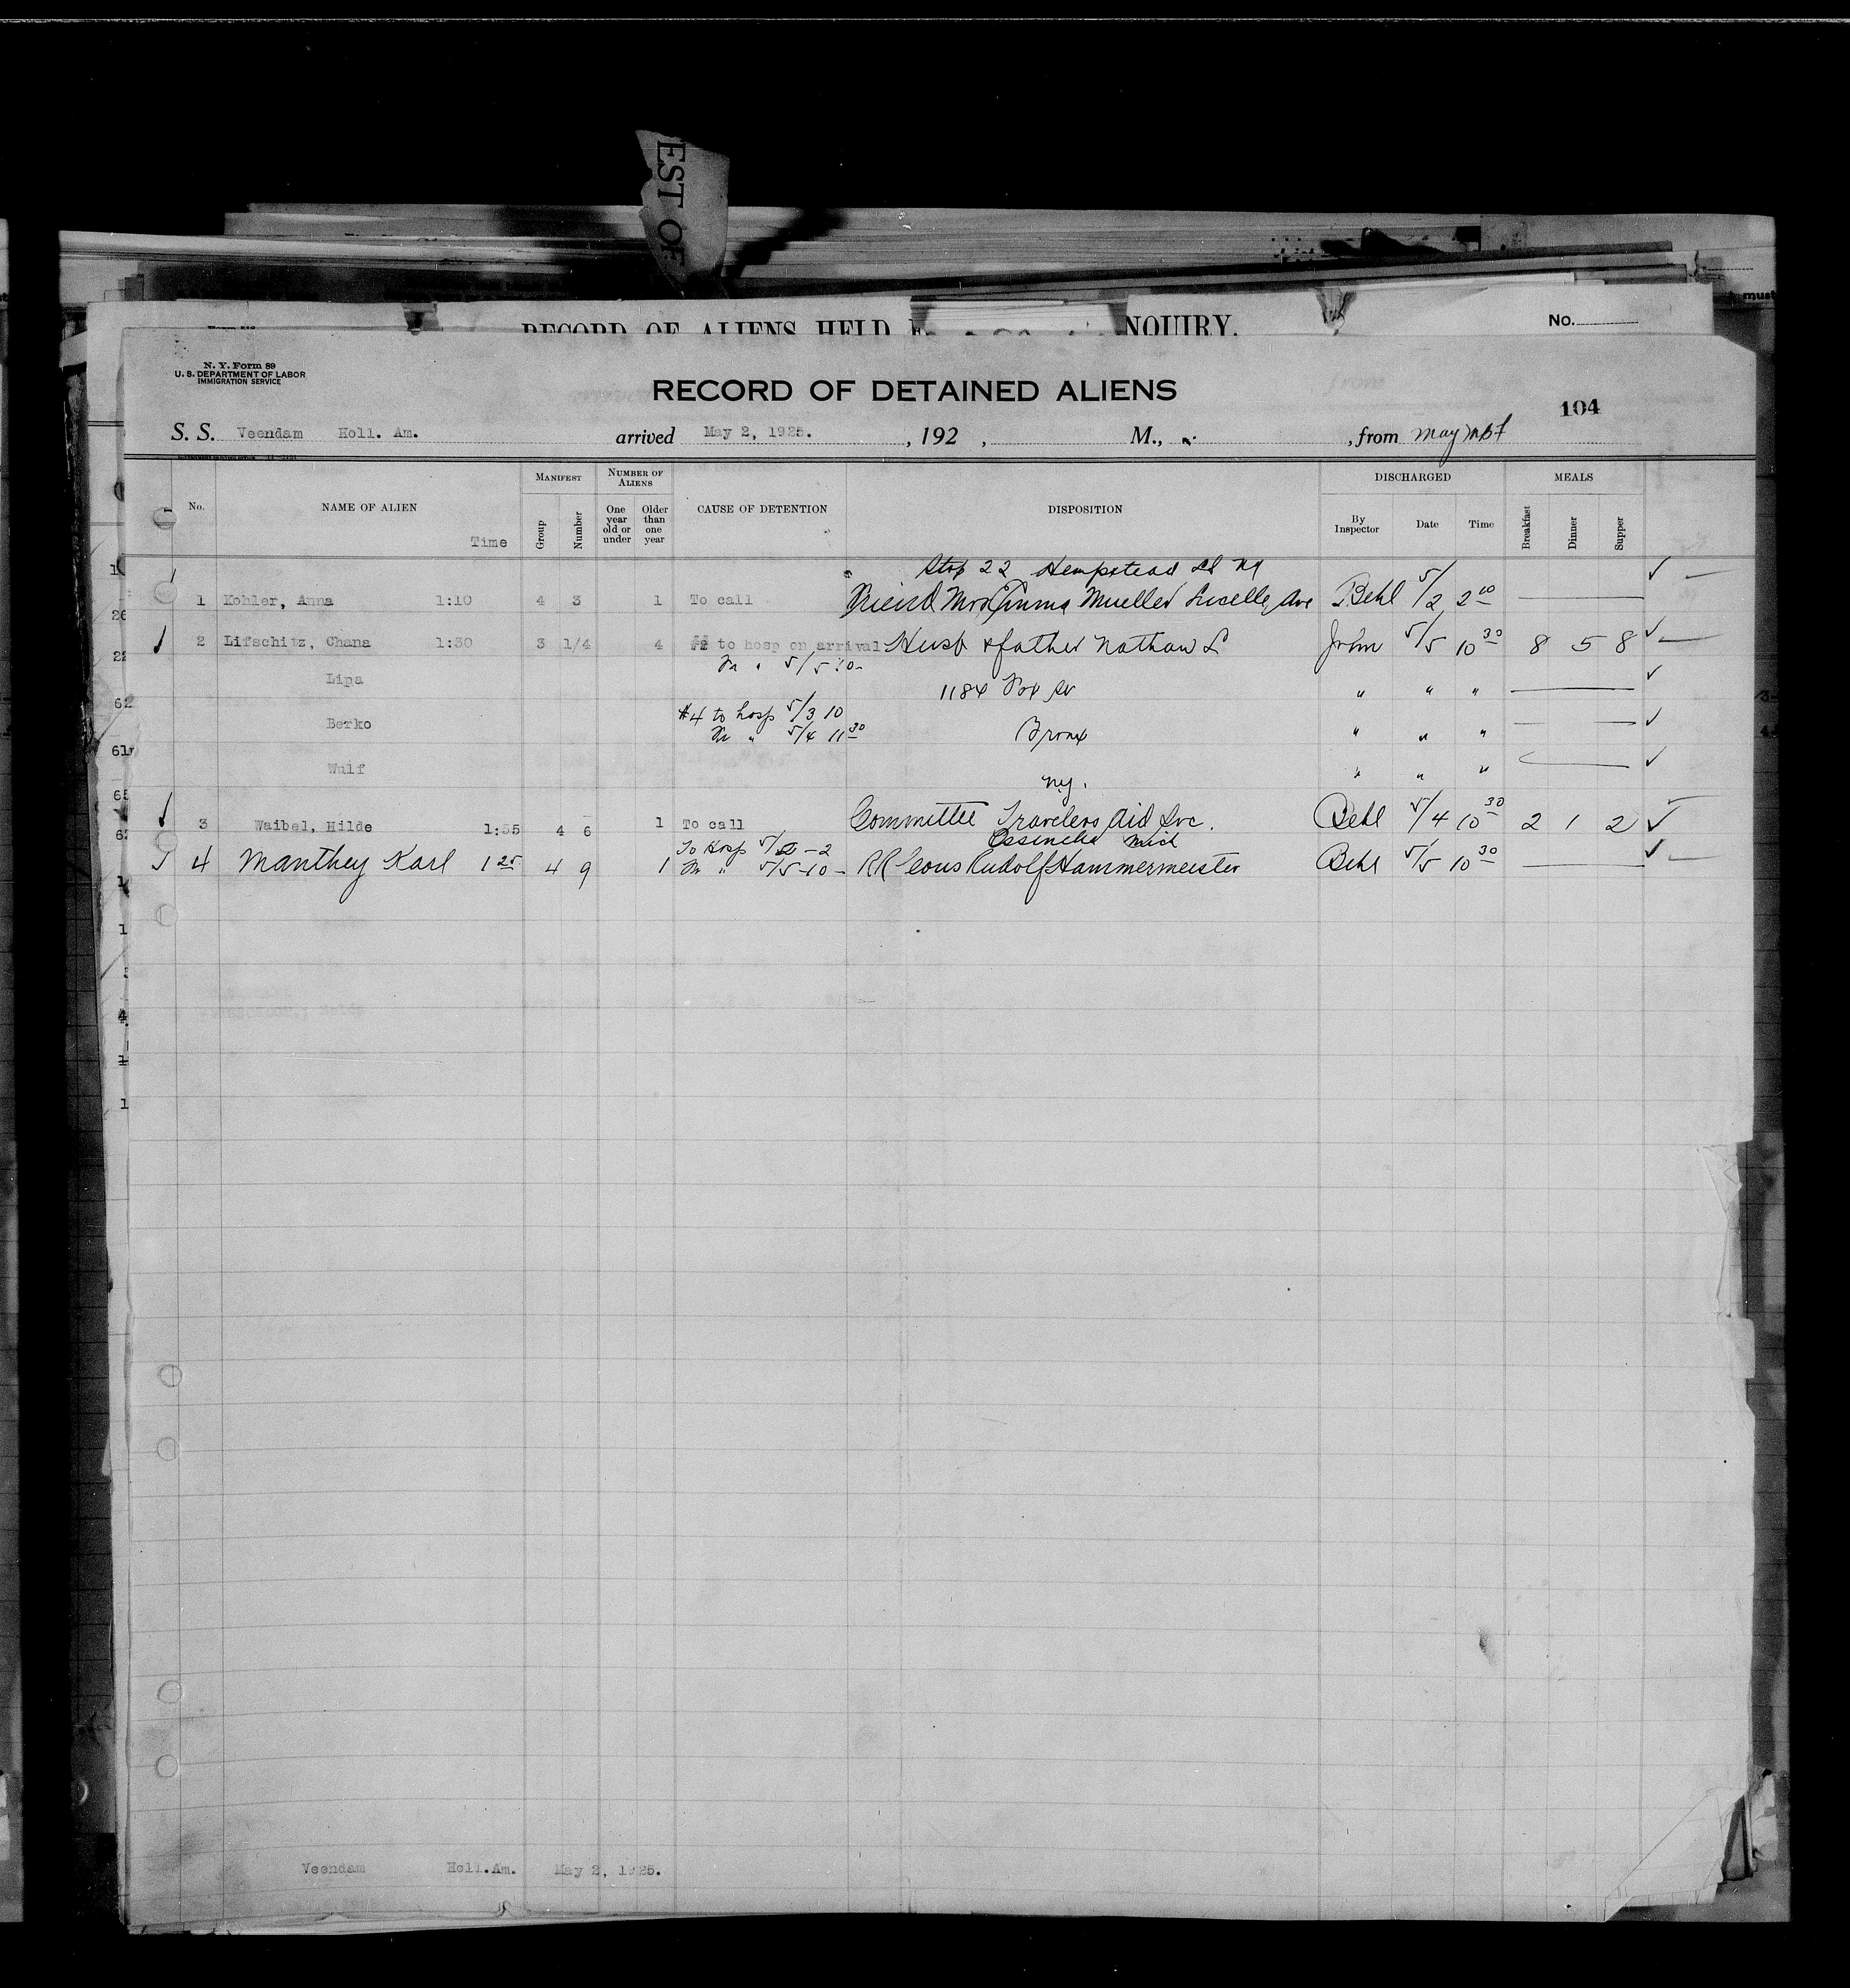 EST OF
RECORD OF ALIENS HELD NQUIRY.
No.
must
N. Y. Form 89
U. S. DEPARTMENT OF LABOR
IMMIGRATION SERVICE
RECORD OF DETAINED ALIENS
104
S. S. Veendam Holl. Am. arrived May 2, 1925. , 192 , M., , from
No. NAME OF ALIEN Time MANIFEST Group Number NUMBER OF ALIENS One year old or under Older than one year CAUSE OF DETENTION DISPOSITION DISCHARGED By Inspector Date Time MEALS Breakfast Dinner Supper
Stop 22 Hempstead LI NY
1 Kohler, Anna 1:10 4 3 1 To call Friend Mrs Emma Mueller Ave Behl 5/2 2 10
2 Lifschitz, Chana 1:30 3 1/4 4 #2 to hosp on arrival Husb & father Nathan L John 5/5 10 30 8 5 8
Fr " 5/5 10-
Lipa 1184 Fox St " " "
#4 to hosp 5/3 10
Berko Fr " 5/4 11 30 Bronx " " "
Wulf " " "
N.Y.
3 Waibel, Hilde 1:35 4 6 1 To call Committee Travelers Aid Soc. Behl 5/4 10 30 2 1 2
To Hosp 5/2 - 2 Mich
4 Manthey Karl 1 25 4 9 1 Fr " 5/5-10- RR Rudolf Hammermeister Behl 5/5 10 30
Veendam Holl.Am. May 2, 1925.